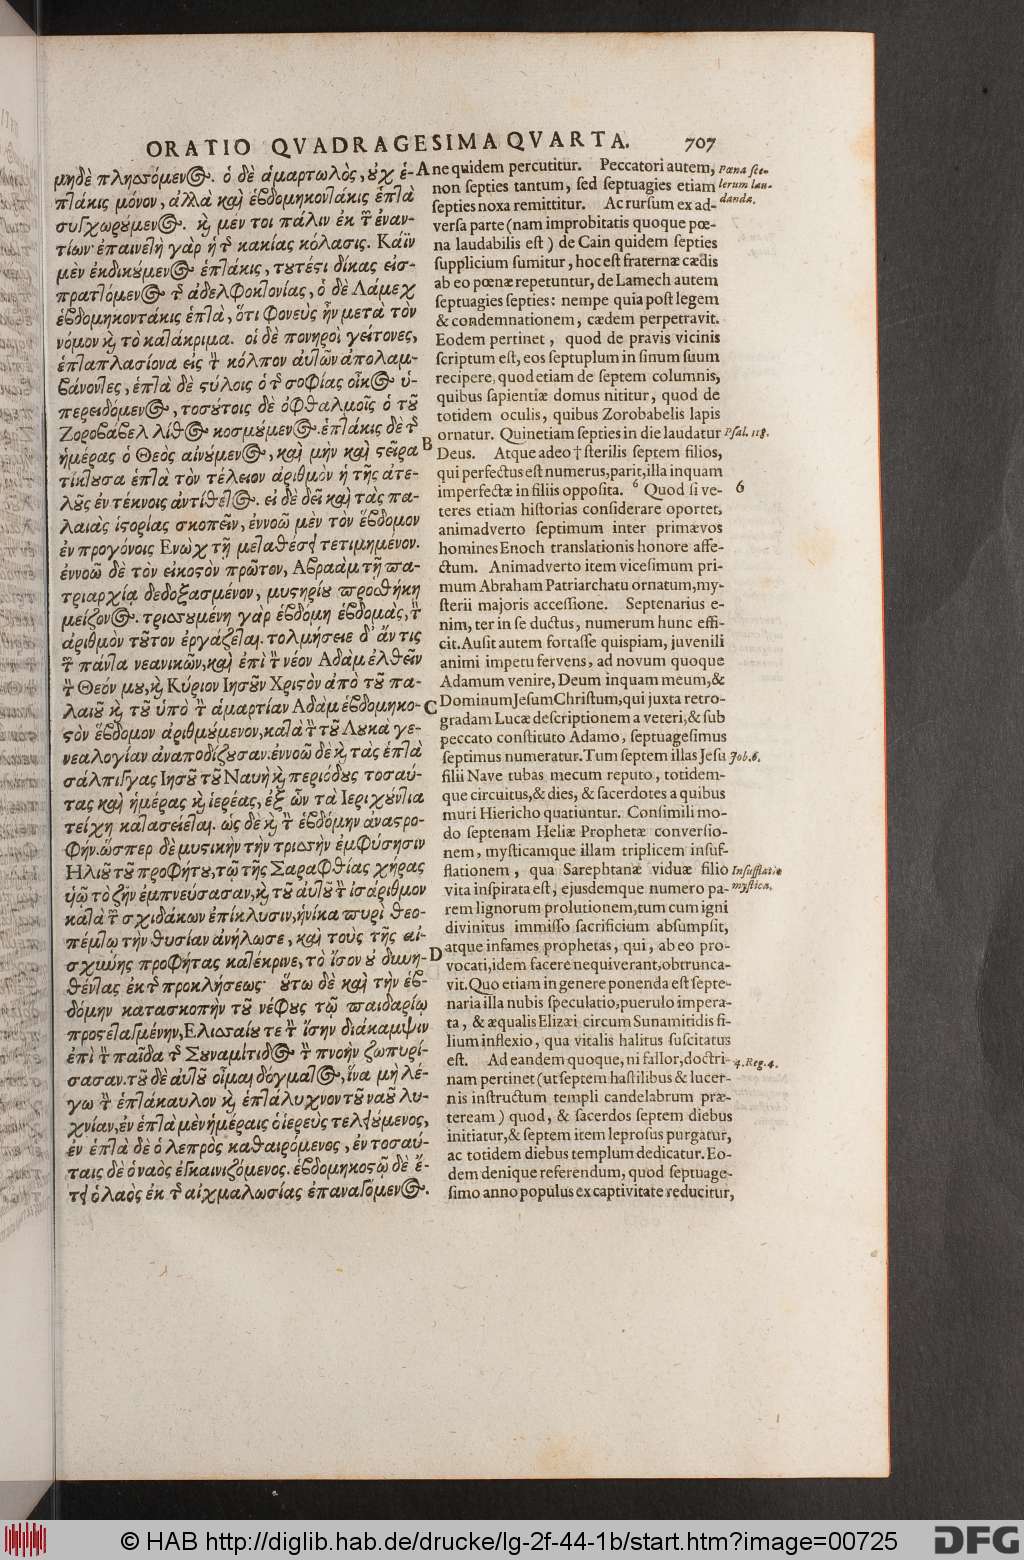 ORATIO QVADRAGESIMA QVARTA. 707
μηδὲ πλησσόμενος. ὁ δὲ ἁμαρτωλὸς, οὐχ ἑ-
πτάκις μόνον, ἀλλὰ καὶ ἑβδομηκοντάκις ἑπτὰ
συγχωρούμενος. καὶ μέν τοι πάλιν ἐκ τῶν ἐναν-
τίων· ἐπαινετὴ γὰρ ἡ τῆς κακίας κόλασις. Κάϊν
μὲν ἐκδικούμενος ἑπτάκις, τουτέστι δίκας εἰσ-
πραττόμενος τῆς ἀδελφοκτονίας, ὁ δὲ Λάμεχ
ἑβδομηκοντάκις ἑπτὰ, ὅτι φονεὺς ἦν μετὰ τὸν
νόμον καὶ τὸ κατάκριμα. οἱ δὲ πονηροὶ γείτονες,
ἑπταπλασίονα εἰς τὸν κόλπον αὐτῶν ἀπολαμ-
βάνοντες, ἑπτὰ δὲ στύλοις ὁ τῆς σοφίας οἶκος ὑ-
περειδόμενος, τοσούτοις δὲ ὀφθαλμοῖς ὁ τοῦ
Ζοροβαβελ λίθος κοσμούμενος. ἑπτάκις δὲ τῆς
ἡμέρας ὁ Θεὸς αἰνούμενος, καὶ μὴν καὶ στεῖρα
τίκτουσα ἑπτὰ τὸν τέλειον ἀριθμὸν ἡ τῆς ἀτε-
λοῦς ἐν τέκνοις ἀντίθετος. εἰ δὲ δεῖ καὶ τὰς πα-
λαιὰς ἱστορίας σκοπεῖν, ἐννοῶ μὲν τὸν ἕβδομον
ἐν προγόνοις Ενὼχ τῇ μεταθέσει τετιμημένον.
ἐννοῶ δὲ τὸν εἰκοστὸν πρῶτον, Αβραὰμ τῇ πα-
τριαρχίᾳ δεδοξασμένον, μυστηρίου προσθήκῃ
μείζονος. τρισσουμένη γὰρ ἑβδόμη ἑβδομὰς, τὸν
ἀριθμὸν τοῦτον ἐργάζεται. τολμήσειε δ' ἄν τις
τῶν πάντα νεανικῶν, καὶ ἐπὶ τὸν νέον Αδὰμ ἐλθεῖν
τὸν Θεόν μου, καὶ Κύριον Ιησοῦν Χριστὸν ἀπὸ τοῦ πα-
λαιοῦ καὶ τοῦ ὑπὸ τὴν ἁμαρτίαν Αδὰμ ἑβδομηκο-
στὸν ἕβδομον ἀριθμούμενον, κατὰ τὴν τοῦ Λουκᾶ γε-
νεαλογίαν ἀναποδίζουσαν. ἐννοῶ δὲ καὶ τὰς ἑπτὰ
σάλπιγγας Ιησοῦ τοῦ Ναυῆ καὶ περιόδους τοσαύ-
τας καὶ ἡμέρας καὶ ἱερέας, ἐξ ὧν τὰ Ιεριχούντια
τείχη κατασείεται. ὡς δὲ καὶ τὴν ἑβδόμην ἀναστρο-
φήν. ὥσπερ δὲ μυστικὴν τὴν τρισσὴν ἐμφύσησιν
Ηλιοῦ τοῦ προφήτου, τῷ τῆς Σαραφθίας χήρας
υἱῷ τὸ ζῆν ἐμπνεύσασαν, καὶ τοῦ αὐτοῦ τὴν ἰσάριθμον
κατὰ τῶν σχιδάκων ἐπίκλυσιν, ἡνίκα πυρὶ θεο-
πέμπτῳ τὴν θυσίαν ἀνήλωσε, καὶ τοὺς τῆς αἰ-
σχύνης προφήτας κατέκρινε, τὸ ἴσον οὐ δυνη-
θέντας ἐκ τῆς προκλήσεως· οὕτω δὲ καὶ τὴν ἑβ-
δόμην κατασκοπὴν τοῦ νέφους τῷ παιδαρίῳ
προστεταγμένην, Ελισσαίου τε τὴν ἴσην διάκαμψιν
ἐπὶ τὸν παῖδα τῆς Σουναμίτιδος τὴν πνοὴν ζωπυρί-
σασαν. τοῦ δὲ αὐτοῦ οἶμαι δόγματος, ἵνα μὴ λέ-
γω τὴν ἑπτάκαυλον καὶ ἑπτάλυχνον τοῦ ναοῦ λυ-
χνίαν, ἐν ἑπτὰ μὲν ἡμέραις ὁ ἱερεὺς τελειούμενος,
ἐν ἑπτὰ δὲ ὁ λεπρὸς καθαιρόμενος, ἐν τοσαύ-
ταις δὲ ὁ ναὸς ἐγκαινιζόμενος. ἑβδομηκοστῷ δὲ ἔ-
τει ὁ λαὸς ἐκ τῆς αἰχμαλωσίας ἐπαναγόμενος.
A
B
C
D
ne quidem percutitur. Peccatori autem,
non septies tantum, sed septuagies etiam
septies noxa remittitur. Ac rursum ex ad-
versa parte (nam improbitatis quoque pœ-
na laudabilis est) de Cain quidem septies
supplicium sumitur, hoc est fraternæ cædis
ab eo pœnæ repetuntur, de Lamech autem
septuagies septies: nempe quia post legem
& condemnationem, cædem perpetravit.
Eodem pertinet, quod de pravis vicinis
scriptum est, eos septuplum in sinum suum
recipere, quod etiam de septem columnis,
quibus sapientiæ domus nititur, quod de
totidem oculis, quibus Zorobabelis lapis
ornatur. Quinetiam septies in die laudatur
Deus. Atque adeo † sterilis septem filios,
qui perfectus est numerus, parit, illa inquam
imperfectæ in filiis opposita. 6 Quod si ve-
teres etiam historias considerare oportet,
animadverto septimum inter primævos
homines Enoch translationis honore affe-
ctum. Animadverto item vicesimum pri-
mum Abraham Patriarchatu ornatum, my-
sterii majoris accessione. Septenarius e-
nim, ter in se ductus, numerum hunc effi-
cit. Ausit autem fortasse quispiam, juvenili
animi impetu fervens, ad novum quoque
Adamum venire, Deum inquam meum, &
Dominum Jesum Christum, qui juxta retro-
gradam Lucæ descriptionem a veteri, & sub
peccato constituto Adamo, septuagesimus
septimus numeratur. Tum septem illas Jesu
filii Nave tubas mecum reputo, totidem-
que circuitus, & dies, & sacerdotes a quibus
muri Hiericho quatiuntur. Consimili mo-
do septenam Heliæ Prophetæ conversio-
nem, mysticamque illam triplicem insuf-
flationem, qua Sarephtanæ viduæ filio
vita inspirata est, ejusdemque numero pa-
rem lignorum prolutionem, tum cum igni
divinitus immisso sacrificium absumpsit,
atque infames prophetas, qui, ab eo pro-
vocati, idem facere nequiverant, obtrunca-
vit. Quo etiam in genere ponenda est septe-
naria illa nubis speculatio, puerulo impera-
ta, & æqualis Elizæi circum Sunamitidis fi-
lium inflexio, qua vitalis halitus suscitatus
est. Ad eandem quoque, ni fallor, doctri-
nam pertinet (ut septem hastilibus & lucer-
nis instructum templi candelabrum præ-
teream) quod, & sacerdos septem diebus
initiatur, & septem item leprosus purgatur,
ac totidem diebus templum dedicatur. Eo-
dem denique referendum, quod septuage-
simo anno populus ex captivitate reducitur,
Pœna sce-
lerum lau-
danda.
Psal. 118.
6
Job. 6.
Insufflatio
mystica.
4. Reg. 4.
© HAB http://diglib.hab.de/drucke/lg-2f-44-1b/start.htm?image=00725
DFG